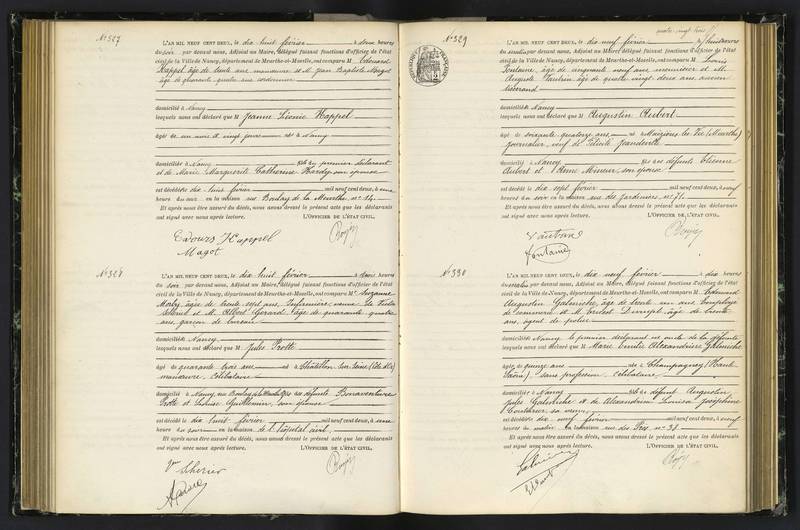 N° 327
L'AN MIL NEUF CENT DEUX, le dix huit février à deux heures
du soir par devant nous, Adjoint au Maire, délégué faisant fonctions d'officier de l'état
civil de la Ville de Nancy, département de Meurthe-et-Moselle, ont comparu M. Edouard
Happel âgé de trente ans manœuvre et M. Jean Baptiste Magot
âgé de quarante quatre ans cordonnier
domiciliés à Nancy
lesquels nous ont déclaré que M Jeanne Léonie Happel
âgée de un mois et vingt jours née à Nancy
domiciliée à Nancy fille du premier déclarant
et de Marie Marguerite Catherine Hardy son épouse
est décédée le dix huit février mil neuf cent deux, à
heures du en la maison rue Boulay de la Meurthe n° 14.
Et après nous être assuré du décès, nous avons dressé le présent acte que les déclarants
ont signé avec nous après lecture. L'OFFICIER DE L'ÉTAT CIVIL,
Edouard Happel
Magot
N° 328
L'AN MIL NEUF CENT DEUX, le dix huit février à deux heures
du soir par devant nous, Adjoint au Maire, délégué faisant fonctions d'officier de l'état
civil de la Ville de Nancy, département de Meurthe-et-Moselle, ont comparu Me Suzanne
âgée de trente sept ans, Infirmière, veuve
et M. Albert Gérard âgé de quarante quatre
ans, garçon de bureau
domiciliés à Nancy
lesquels nous ont déclaré que M Jules Protte
âgé de quarante trois ans né à Châtillon sur Seine (Côte d'Or)
manœuvre, célibataire
domicilié à Nancy, rue fils des défunts Bonaventure
Protte et Louise Guillemin, son épouse
est décédé le dix huit février mil neuf cent deux, à
heures du en la maison de l'hôpital civil,
Et après nous être assuré du décès, nous avons dressé le présent acte que les déclarants
ont signé avec nous après lecture. L'OFFICIER DE L'ÉTAT CIVIL,
quatre vingt trois
N° 329
L'AN MIL NEUF CENT DEUX, le dix neuf février à heures
du par devant nous, Adjoint au Maire, délégué faisant fonctions d'officier de l'état
civil de la Ville de Nancy, département de Meurthe-et-Moselle, ont comparu M. Louis
Fontaine, âgé de cinquante neuf ans, menuisier et M.
Auguste Vautrin âgé de quatre vingt deux ans, ancien
tisserand
domiciliés à Nancy
lesquels nous ont déclaré que M Augustin Aubert
âgé de soixante quatorze ans né à Maizières les Vic (Meurthe)
journalier, veuf de Félicité
domicilié à Nancy fils des défunts Etienne
Aubert et Anne Mineur, son épouse
est décédé le dix sept février mil neuf cent deux, à neuf
heures du soir en la maison rue des Jardiniers n° 71.
Et après nous être assuré du décès, nous avons dressé le présent acte que les déclarants
ont signé avec nous après lecture. L'OFFICIER DE L'ÉTAT CIVIL,
Vautrin
Fontaine
N° 330
L'AN MIL NEUF CENT DEUX, le dix neuf février à dix heures
du matin par devant nous, Adjoint au Maire, délégué faisant fonctions d'officier de l'état
civil de la Ville de Nancy, département de Meurthe-et-Moselle, ont comparu M. Edouard
Augustin Galmiche, âgé de trente un ans, employé
de commerce et M. âgé de trente
ans, agent de police
domiciliés à Nancy, le premier déclarant est oncle de la défunte
lesquels nous ont déclaré que M Marie Emilie Alexandrine Galmiche
âgée de quinze ans née à Champagney (Haute
Saône) sans profession, célibataire
domiciliée à Nancy fille de défunt Augustin
Jules Galmiche et de Alexandrine Louise Joséphine
sa veuve
est décédée le dix neuf février mil neuf cent deux, à neuf
heures du matin en la maison rue des n° 38.
Et après nous être assuré du décès, nous avons dressé le présent acte que les déclarants
ont signé avec nous après lecture. L'OFFICIER DE L'ÉTAT CIVIL,